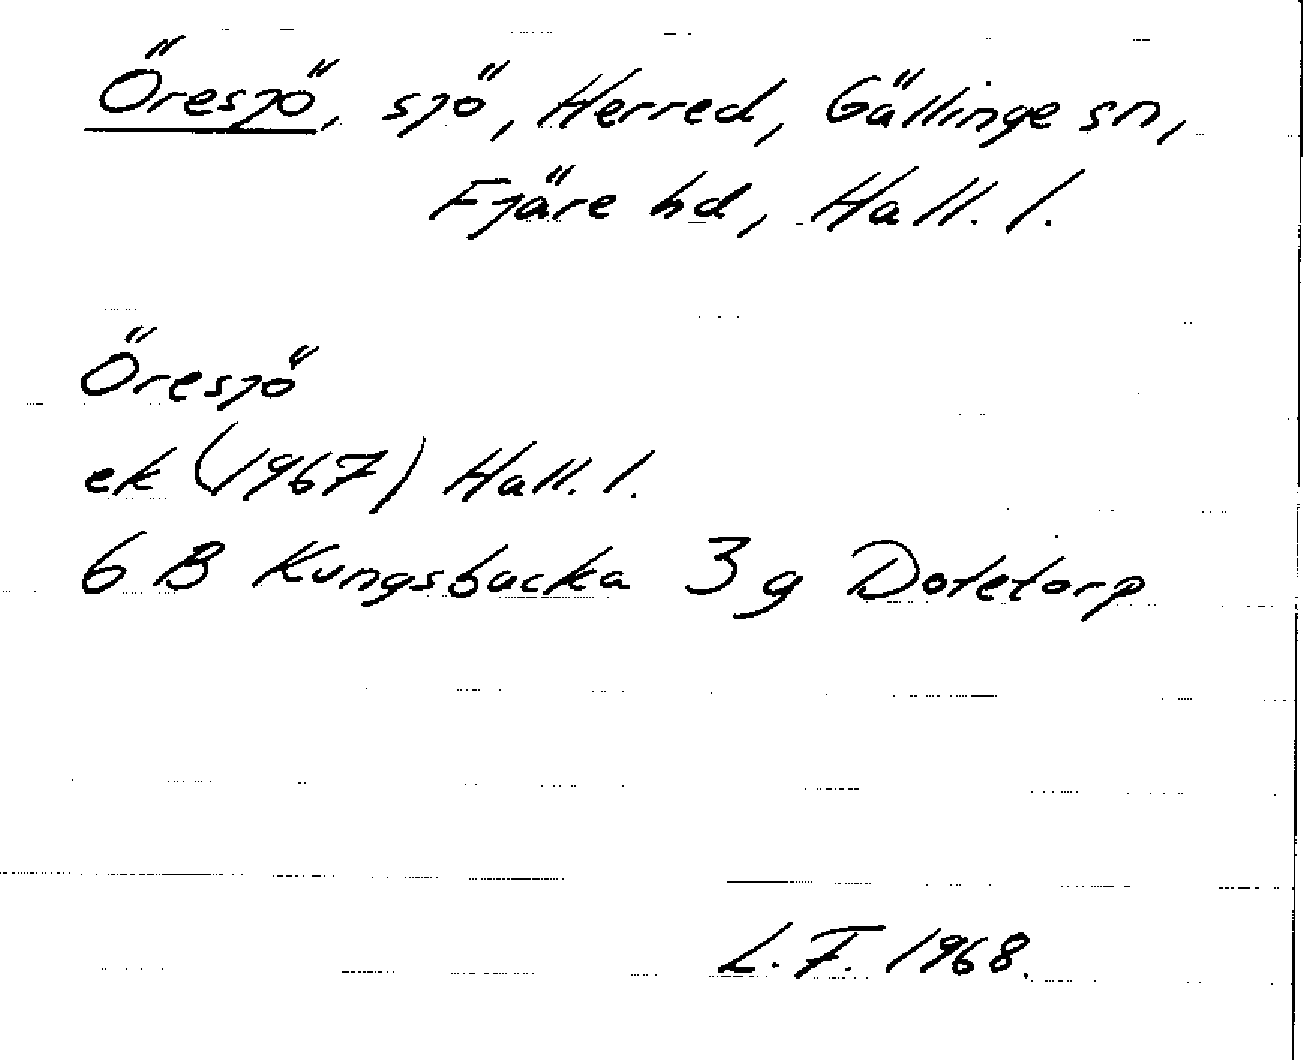 Öresjö, sjö, Herred, Gällinge sn,
Fjäre hd, Hall. l.
Öresjö
ek (1967) Hall. l.
6 B Kungsbacka 3 g Dotetorp
L. F. 1968.